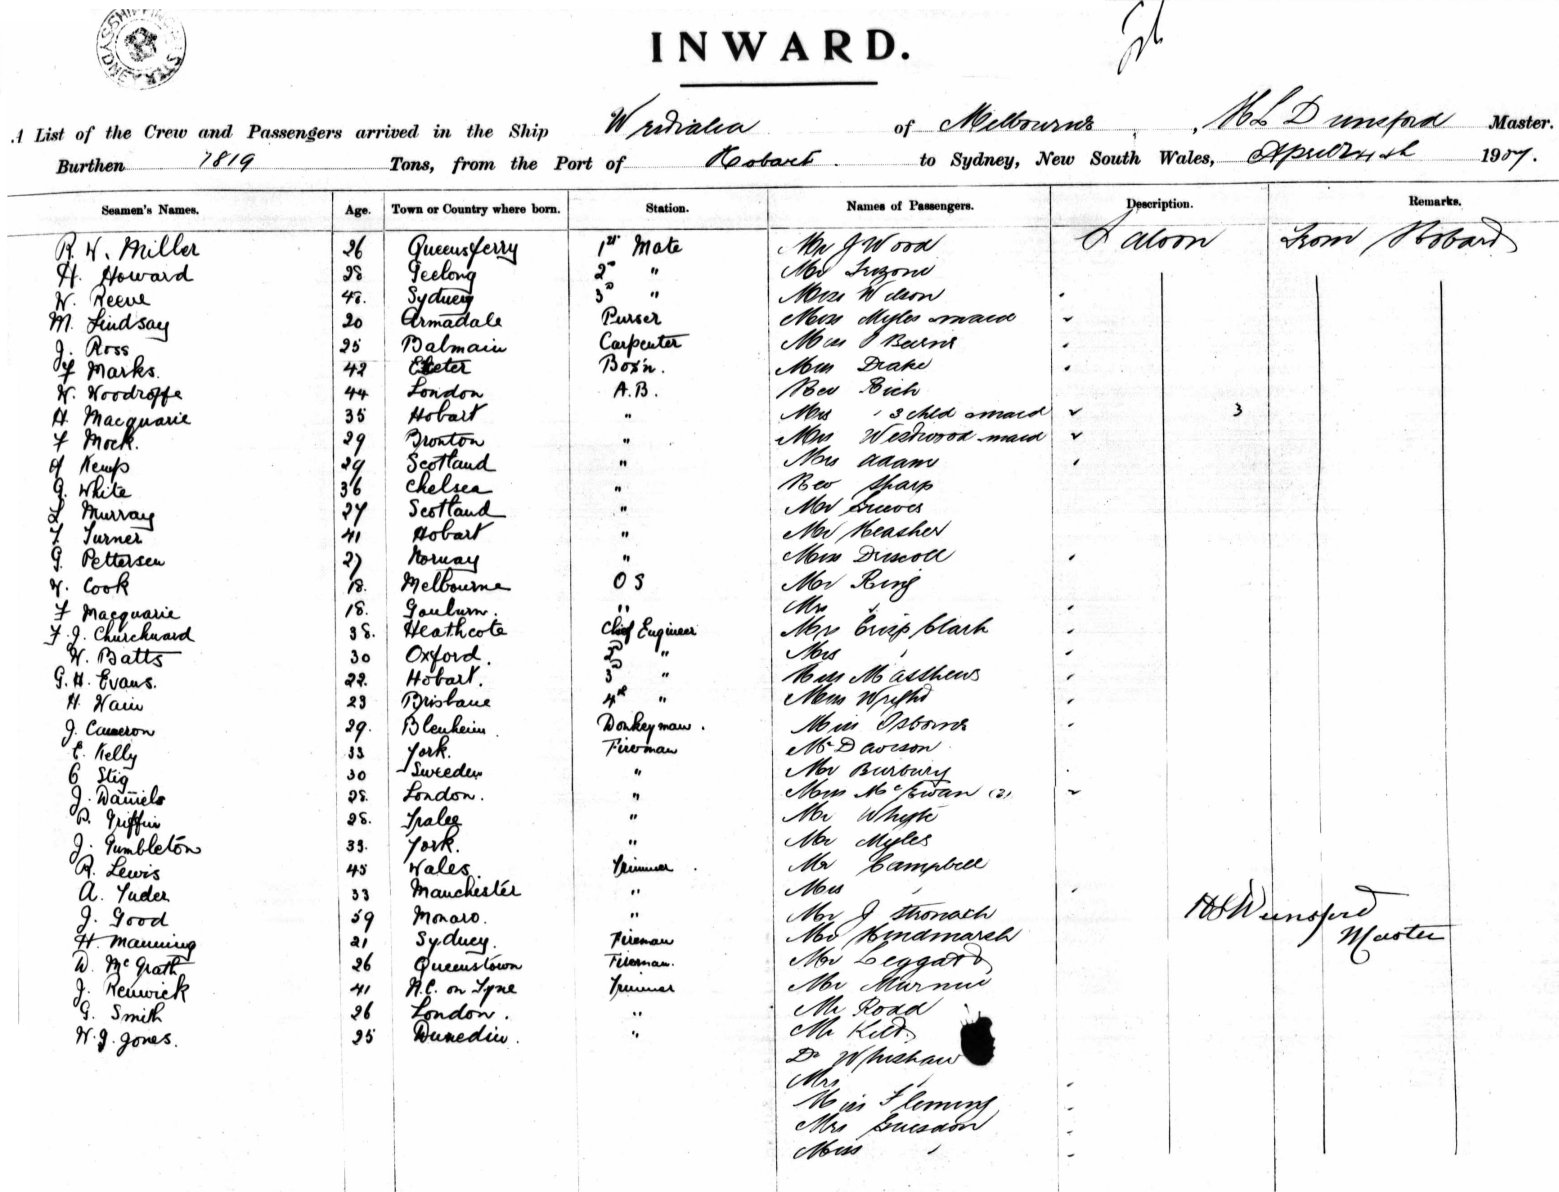 INWARD.
A List of the Crew and Passengers arrived in the Ship Westralia of Melbourne, H L Dunsford Master.
Burthen 1819 Tons, from the Port of Hobart to Sydney, New South Wales, April 24th 1907.
Seamen's Names. Age. Town or Country where born. Station. Names of Passengers. Description. Remarks.
R. W. Miller 26 Queensferry 1st Mate Mr J Wood Saloon From Hobart
H. Howard 28 Geelong 2nd " Mr
W. Reeve 48. Sydney 3rd " Miss Wilson
M. Lindsay 20 Armadale Purser Miss Myles & maid
J. Ross 25 Balmain Carpenter Miss
J Marks. 42 Exeter Bos'n. Miss Drake
W. Woodroffe 44 London A.B. Rev Rich
H. Macquarie 35 Hobart " Mrs " 3 chld & maid 3
F Mock. 29 Bronton " Mrs Westwood & maid
Kemp 29 Scotland " Mrs Adams
G. White 36 Chelsea " Rev Sharp
L Murray 27 Scotland " Mr Greeves
F Turner 41 Hobart " Mr
G. Pettersen 27 Norway " Miss Driscoll
W. Cook 18. Melbourne O S Mr Ring
F Macquarie 18. Goulburn. " Mrs "
F. J. Churchward 38. Heathcote Chief Engineer Mr Crisp Clark
W. Batts 30 Oxford. 2nd " Mrs "
G. H. Evans. 22. Hobart. 3rd " Miss Matthews
H. 23 Brisbane 4th " Miss Wright
J. Cameron 29. Blenheim Donkeyman. Miss Osborne
E. Kelly 33 York. Fireman Mr Davison
C Stig 30 Sweden " Mr Burbury
J. Daniels 28. London. " Miss McEwan (2)
P. Griffin 28. Tralee " Mr Whyte
J. Gumbleton 33. York. " Mr Myles
R. Lewis 45 Wales. Trimmer Mr Campbell
A. Tuder 33 Manchester " Mrs "
J. Good 59 Monaro. " Mr J Stronach H L Dunsford
H. Manning 21 Sydney. Fireman Mr Hindmarsh Master
D. McGrath 26 Queenstown Fireman. Mr Leggatt
J. Renwick 41 N.C. on Tyne Trimmer Mr
G. Smith 26 London. " Mr Rodd
W. J. Jones. 25 Dunedin. " Mr
Dr Whishaw
Mrs "
Miss Fleming
Mrs Guesdon
Miss "